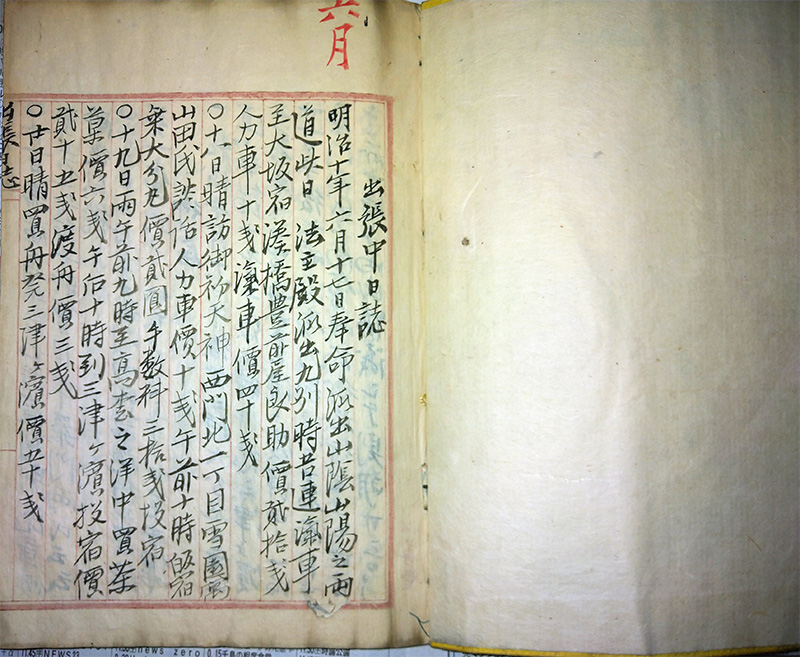 六月
出張中日誌
明治十年六月十七日奉命派出山陰山陽之両
道此日 法主殿派出九州時昔連滊車
至大坂宿湊橋豊前屋良助價貳拾戔
人力車十戔滊車價四十戔
〇十八日晴訪御初天神西門北一丁目雪園寓
山田氏談話人力車價十戔午前十時皈宿
乗大分丸價貳圓手数料三拾戔投宿
〇十九日雨午前九時至高松之洋中買茶
菓價六戔午后十時到三津ヶ濱投宿價
貳十五戔渡舟價三戔
〇廿日晴買舟発三津ヶ濱價五十戔
出張日誌